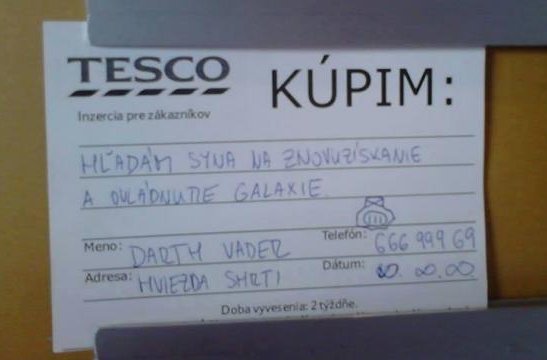 TESCO
KÚPIM:
Inzercia pre zákazníkov
HĽADÁM SYNA NA ZNOVUZÍSKANIE
A OVLÁDNUTIE GALAXIE
Meno: DARTH VADER
Telefón: 666 999 69
Adresa: HVIEZDA SMRTI
Dátum: 00.00.00
Doba vyvesenia: 2 týždňe.